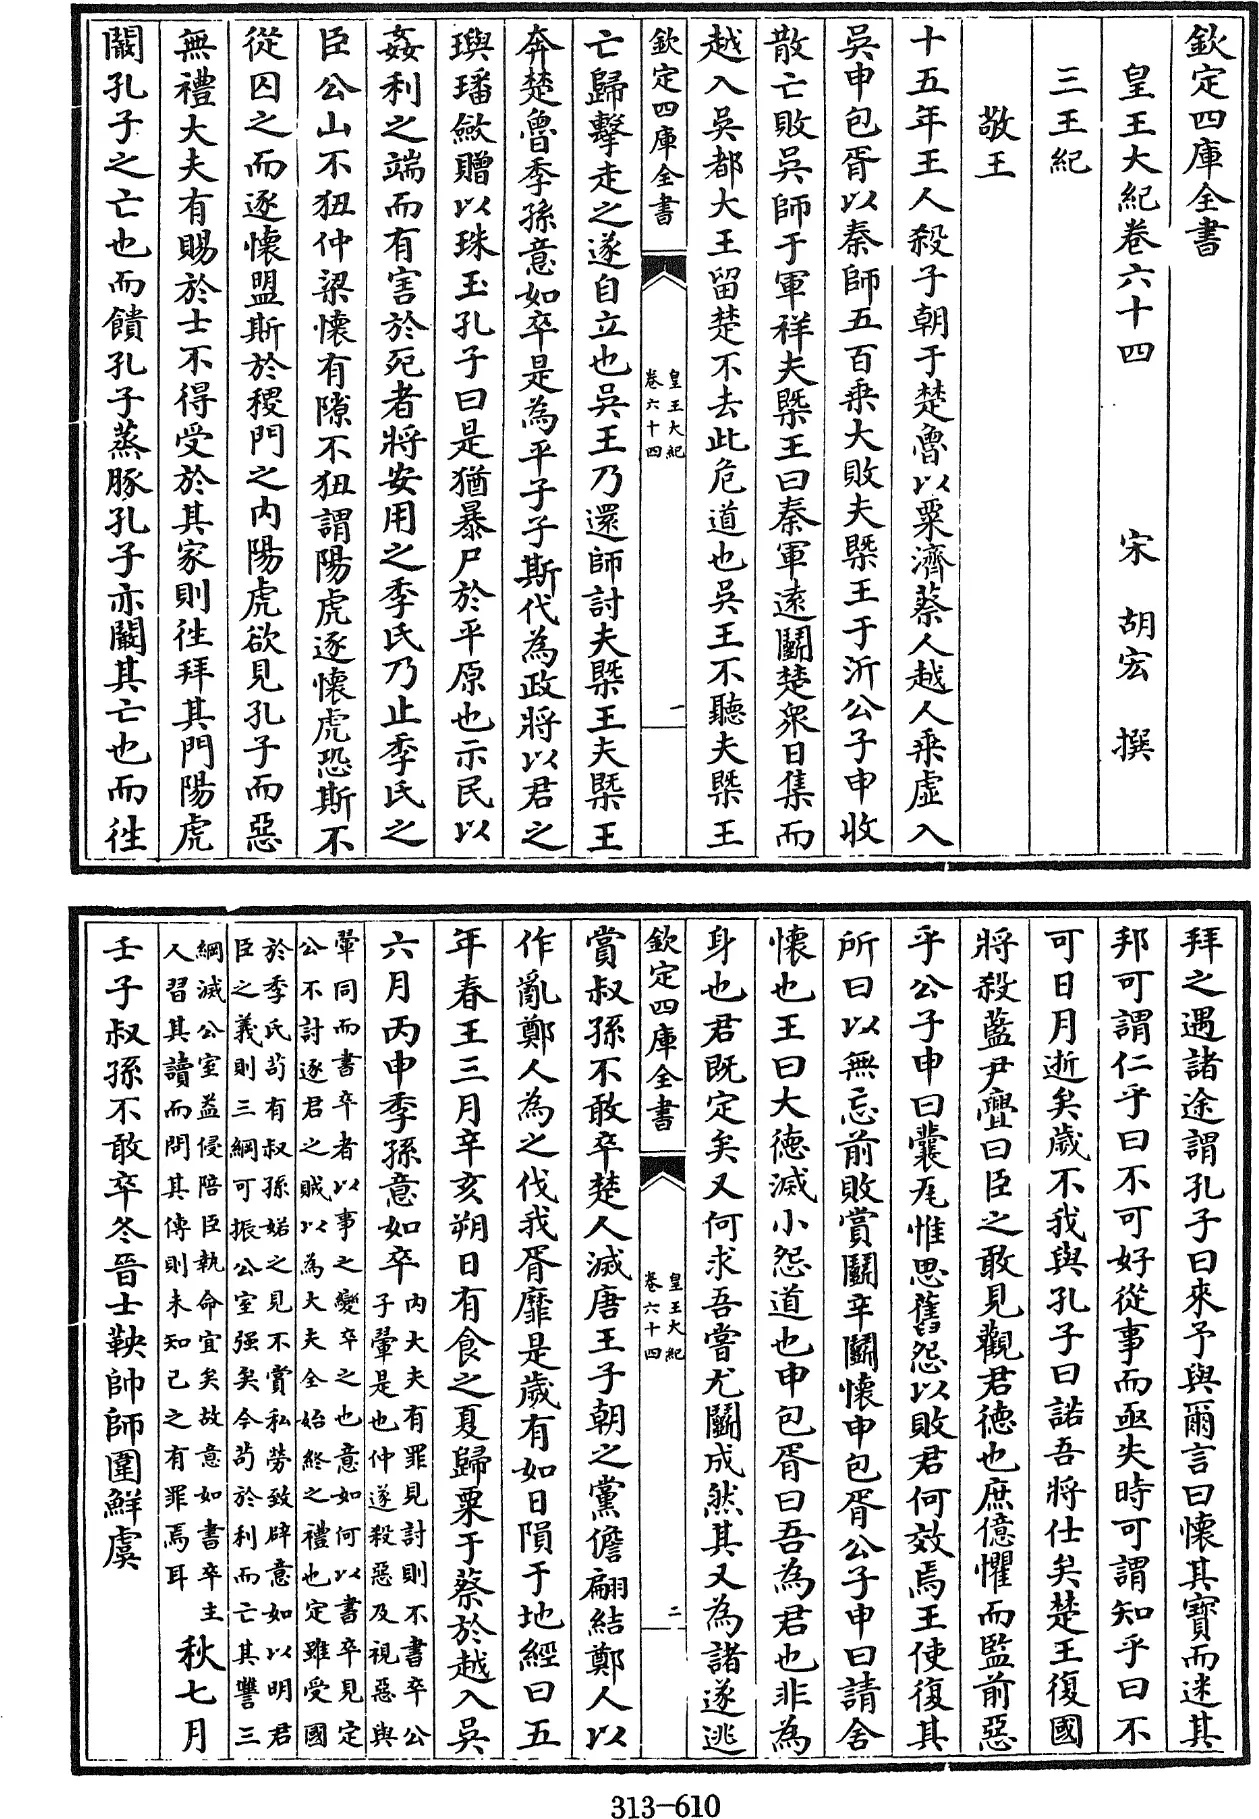 欽定四庫全書
皇王大紀卷六十四
宋 胡宏 撰
三王紀
敬王
十五年王人殺子朝于楚魯以粟濟蔡人越人乗虛入
吳申包胥以秦師五百乗大敗夫㮣王于沂公子申收
散亡敗吳師于軍祥夫㮣王曰秦軍逺鬬楚衆日集而
越入吳都大王留楚不去此危道也吳王不聽夫㮣王
欽定四庫全書
皇王大紀
卷六十四
一
亡歸擊走之遂自立也吳王乃還師討夫㮣王夫㮣王
奔楚魯季孫意如卒是為平子子斯代為政將以君之
璵璠斂贈以珠玉孔子曰是猶暴尸於平原也示民以
姦利之端而有害於死者將安用之季氏乃止季氏之
臣公山不狃仲梁懷有隙不狃謂陽虎逐懷虎恐斯不
從囚之而逐懷盟斯於稷門之内陽虎欲見孔子而惡
無禮大夫有賜於士不得受於其家則徃拜其門陽虎
闞孔子之亡也而饋孔子蒸豚孔子亦闞其亡也而徃
拜之遇諸途謂孔子曰來予與爾言曰懷其寳而迷其
邦可謂仁乎曰不可好從事而亟失時可謂知乎曰不
可日月逝矣歲不我與孔子曰諾吾將仕矣楚王復國
將殺藍尹亹曰臣之敢見觀君德也庶億懼而監前惡
乎公子申曰囊瓦惟思舊怨以敗君何效焉王使復其
所曰以無忘前敗賞鬬辛鬬懷申包胥公子申曰請舍
懷也王曰大德滅小怨道也申包胥曰吾為君也非為
身也君既定矣又何求吾嘗尤鬬成然其又為諸遂逃
欽定四庫全書
皇王大紀
卷六十四
二
賞叔孫不敢卒楚人滅唐王子朝之黨儋翩結鄭人以
作亂鄭人為之伐我胥靡是歲有如日隕于地經曰五
年春王三月辛亥朔日有食之夏歸粟于蔡於越入吳
六月丙申季孫意如卒内大夫有罪見討則不書卒公
子翬是也仲遂殺惡及視惡與
翬同而書卒者以事之變卒之也意如何以書卒見定
公不討逐君之賊以為大夫全始終之禮也定雖受國
於季氏茍有叔孫婼之見不賞私勞致辟意如以明君
臣之義則三綱可振公室强矣今茍於利而亡其讐三
綱滅公室益侵陪臣執命宜矣故意如書卒主
人習其讀而問其傳則未知己之有罪焉耳秋七月
壬子叔孫不敢卒冬晉士鞅帥師圍鮮虞
313-610